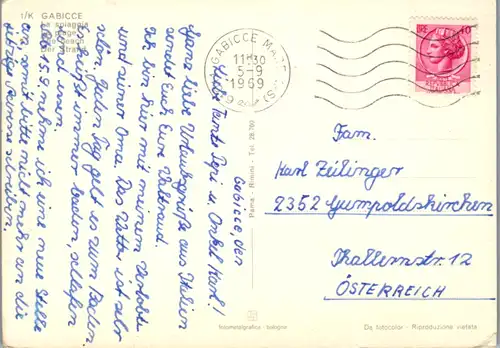 1/K GABICCE
La spiaggia
La plage
The beach
Der Strand
GABICCE MARE
11.30
5-9
1969
(PS)
10
Gabicce, den
Liebe Tante Pepi u. Onkel Karl!
Ganz liebe Urlaubsgrüße aus Italien
sendet Euch Eure Waltraud.
Ich bin hier mit meinem Verlobten
und seiner Oma. Das Wetter ist sehr
schön. Jeden Tag geht es zum Baden.
Sonst immer baden, schlafen
und essen.
Ab 15.9. nehme ich eine neue Stelle
an, somit bitte nicht mehr an die
jetzige Adresse schreiben.
Fam.
Karl Zeilinger
2352 Gumpoldskirchen
Thallernstr. 12
ÖSTERREICH
Rimini - Tel. 28.760
fotometalgrafica - bologna
Da fotocolor - Riproduzione vietata